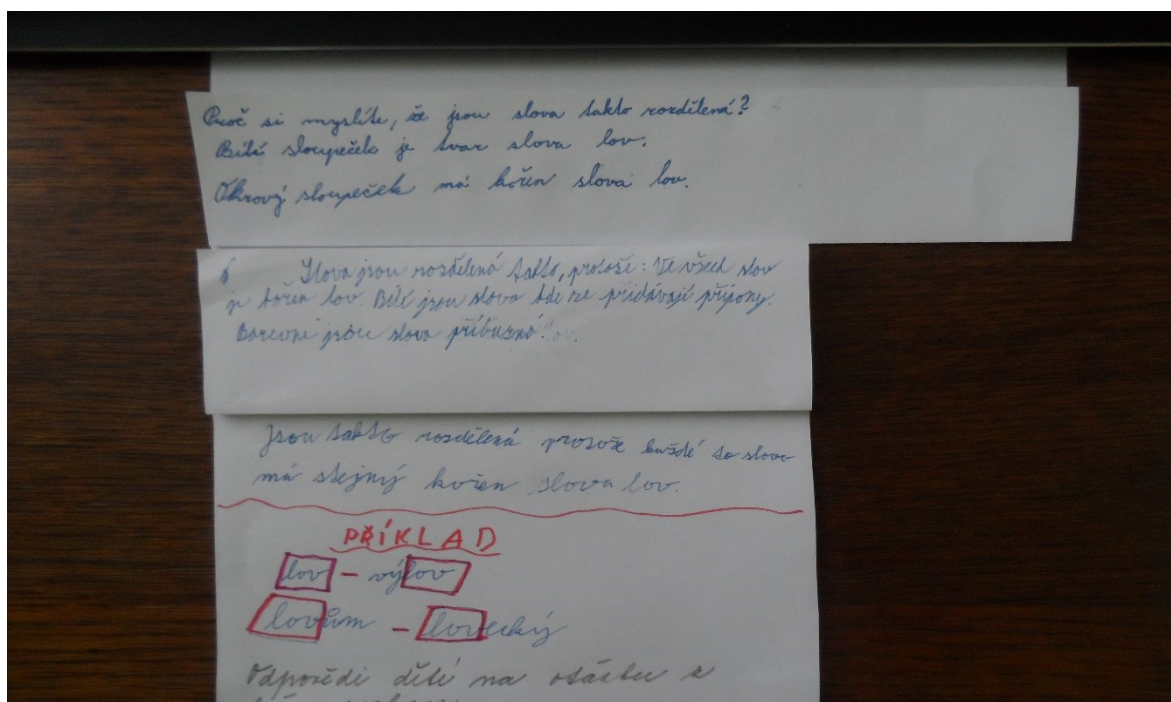 Proč si myslíte, že jsou slova takto rozdělená?
Bílí sloupeček je tvar slova lov.
Okrový sloupeček má kořen slova lov.
Slova jsou rozdělená takto, protože: Ve všech slov
je kořen lov. Bílí jsou slova kde se přidávají přípony.
Barevné jsou slova příbuzná.
Jsou takto rozdělená protože každé to slovo
má stejný kořen slova lov.
PŘÍKLAD
lov - výlov
lovům - lovecký
Odpovědi dětí na otázku z